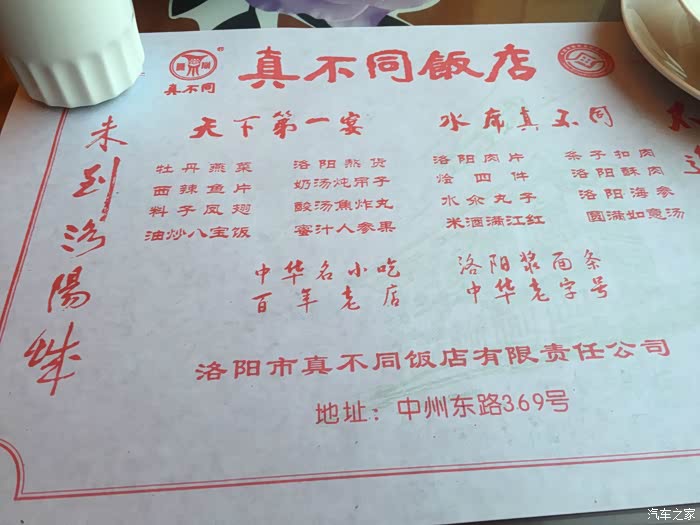 真不同
真不同饭店
未到洛陽城
天下第一宴 水席真不同
牡丹燕菜 洛阳熬货 洛阳肉片 条子扣肉
西辣鱼片 奶汤炖吊子 烩四件 洛阳酥肉
料子凤翅 酸汤焦炸丸 水汆丸子 洛阳海参
油炒八宝饭 蜜汁人参果 米酒满江红 圆满如意汤
中华名小吃 洛阳浆面条
百年老店 中华老字号
洛阳市真不同饭店有限责任公司
地址：中州东路369号
汽车之家